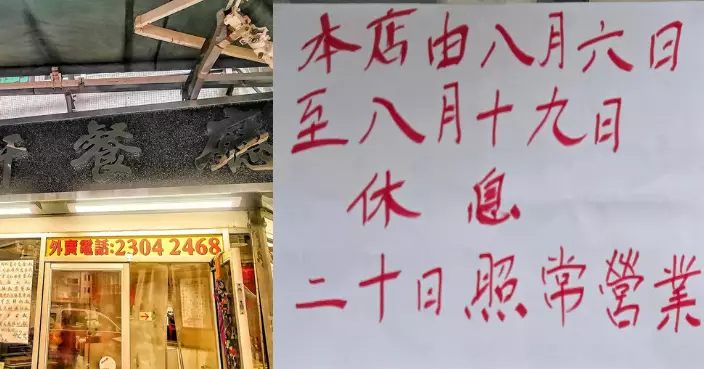 餐廳
外賣電話:2304 2468
本店由八月六日
至八月十九日
休息
二十日照常營業